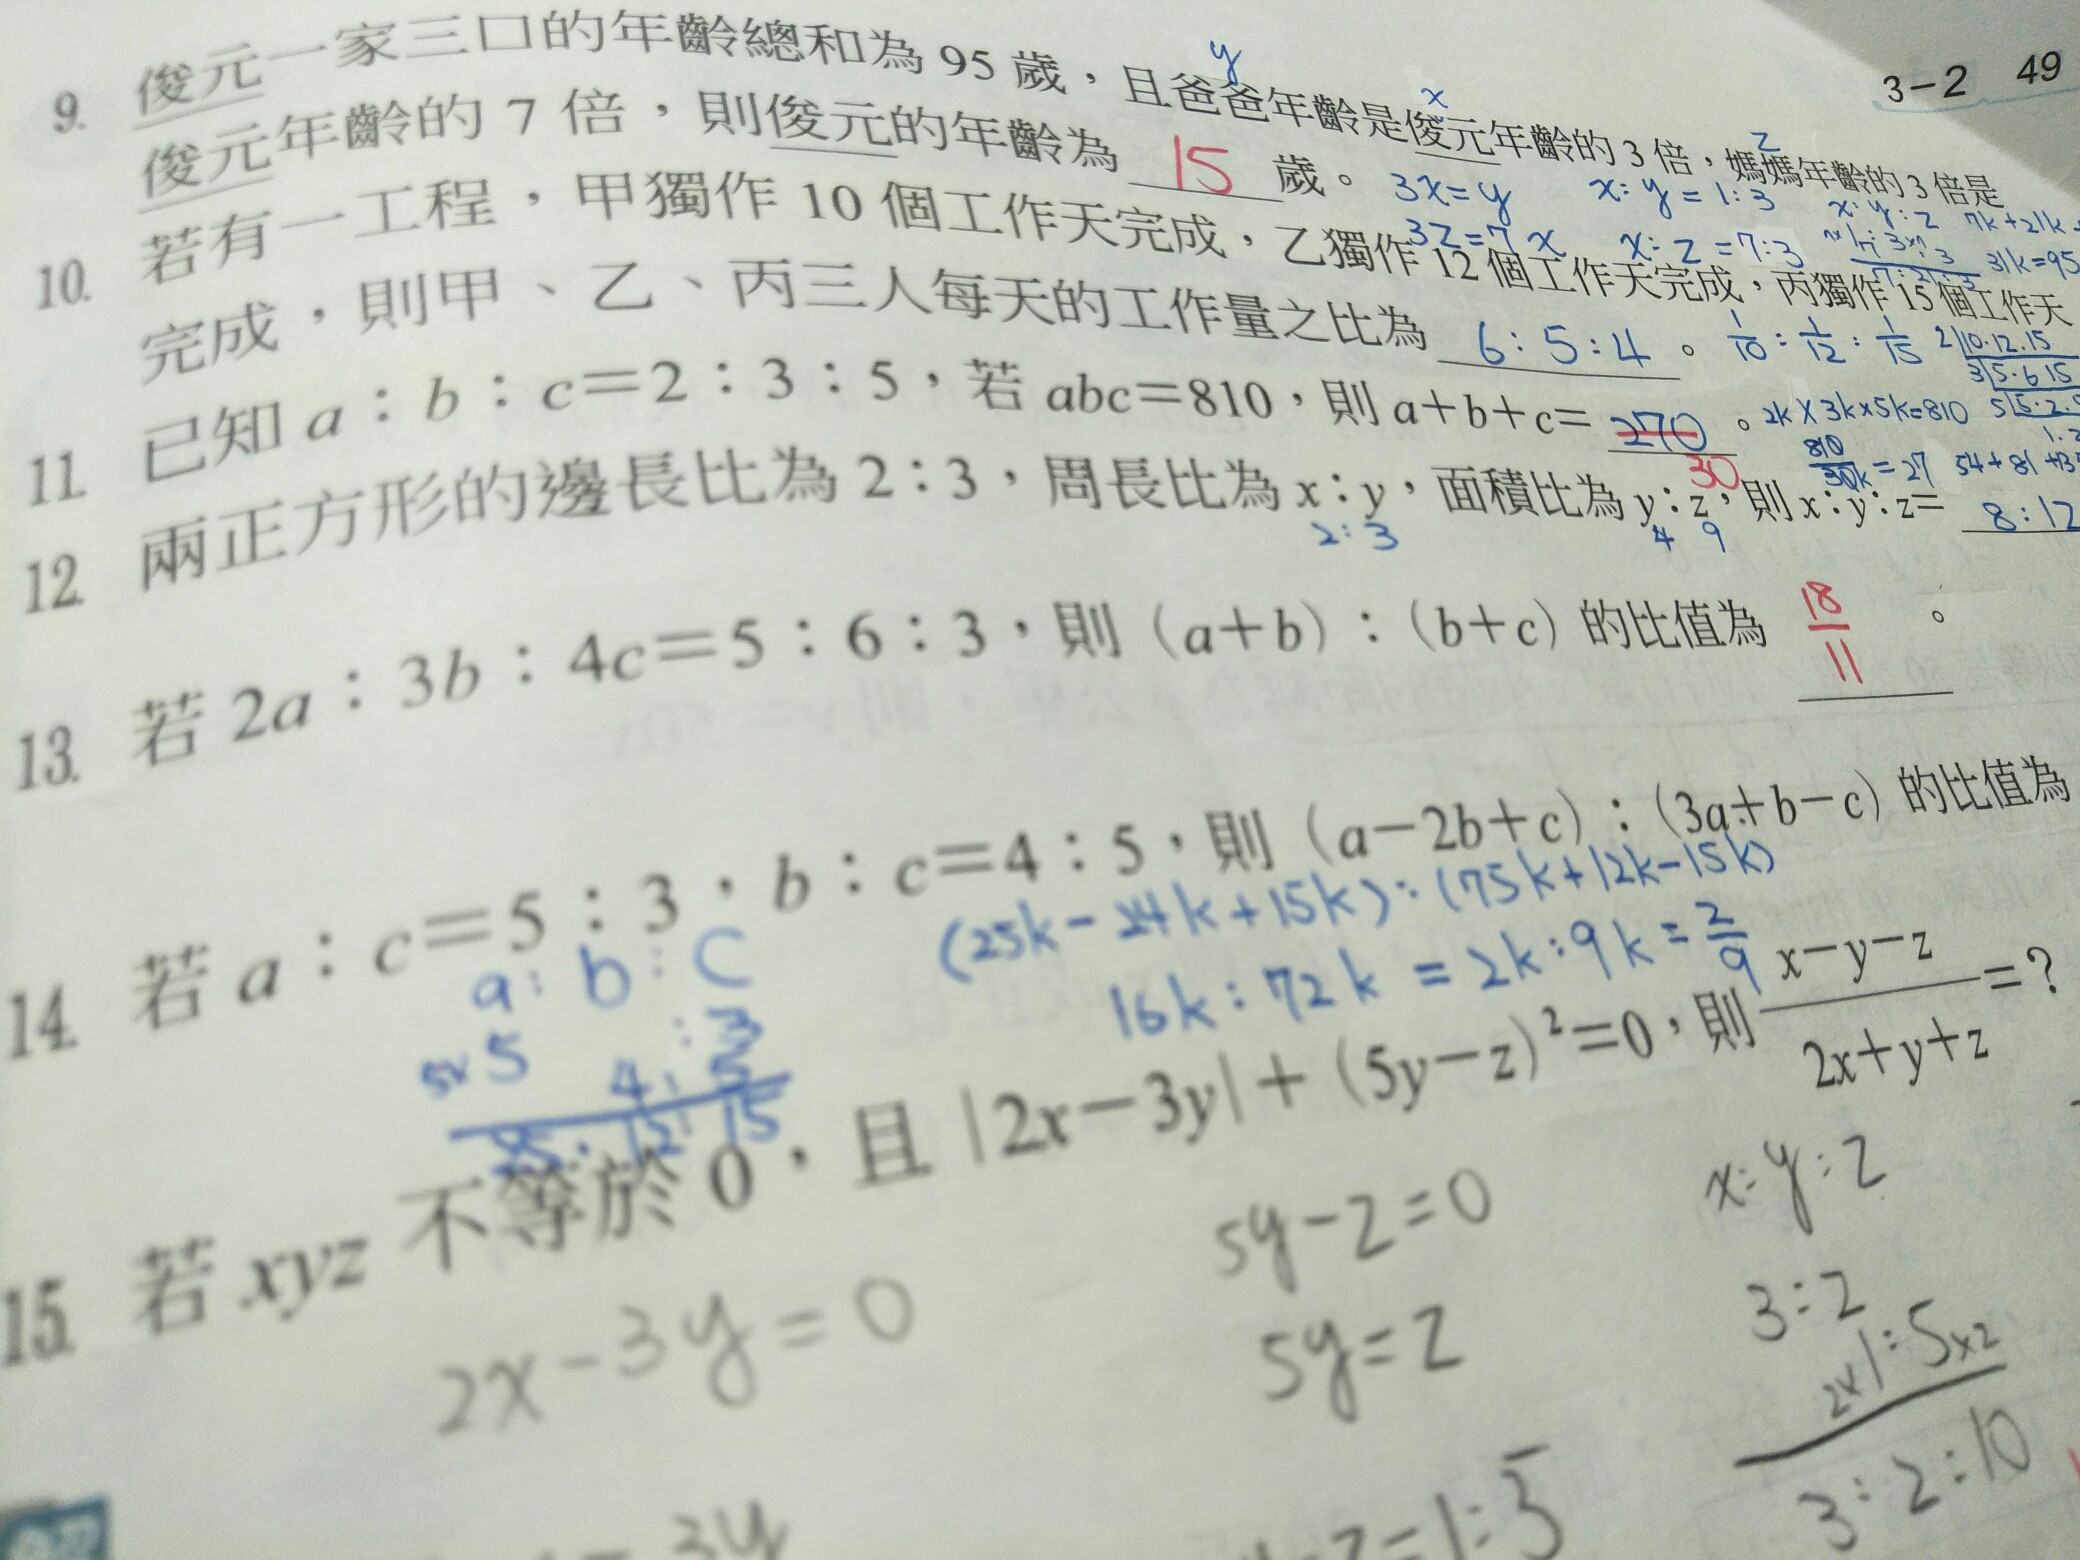 3-2 49
9. 俊元一家三口的年齡總和為 95 歲，且爸爸年齡是俊元年齡的 3 倍，媽媽年齡的 3 倍是
y
x
z
俊元年齡的 7 倍，則俊元的年齡為 15 歲。
3x=y x:y=1:3
3z=7x x:z=7:3
x:y:z 7k+21k
31k=95
10. 若有一工程，甲獨作 10 個工作天完成，乙獨作 12 個工作天完成，丙獨作 15 個工作天
完成，則甲、乙、丙三人每天的工作量之比為 6:5:4 。
1/10 : 1/12 : 1/15
2 10.12.15
3 5.6 15
5 5.2.5
11. 已知 a：b：c＝2：3：5，若 abc＝810，則 a＋b＋c＝ 270 。
30
2k×3k×5k=810
810/30k=27 54+81+13
12. 兩正方形的邊長比為 2：3，周長比為 x：y，面積比為 y：z，則 x：y：z＝ 8:12
2:3
4 9
13. 若 2a：3b：4c＝5：6：3，則（a＋b）：（b＋c）的比值為 18/11 。
14. 若 a：c＝5：3，b：c＝4：5，則（a－2b＋c）：（3a＋b－c）的比值為
(25k-24k+15k):(75k+12k-15k)
16k:72k=2k:9k=2/9
a:b:c
5× 5 :3
4:5
25:12:15
15. 若 xyz 不等於 0，且 |2x－3y|＋（5y－z）²＝0，則 x－y－z/2x＋y＋z＝？
2x-3y=0
5y-z=0
5y=z
x:y:z
3:2
2×1:5×2
3:2:10
3y
=1:5